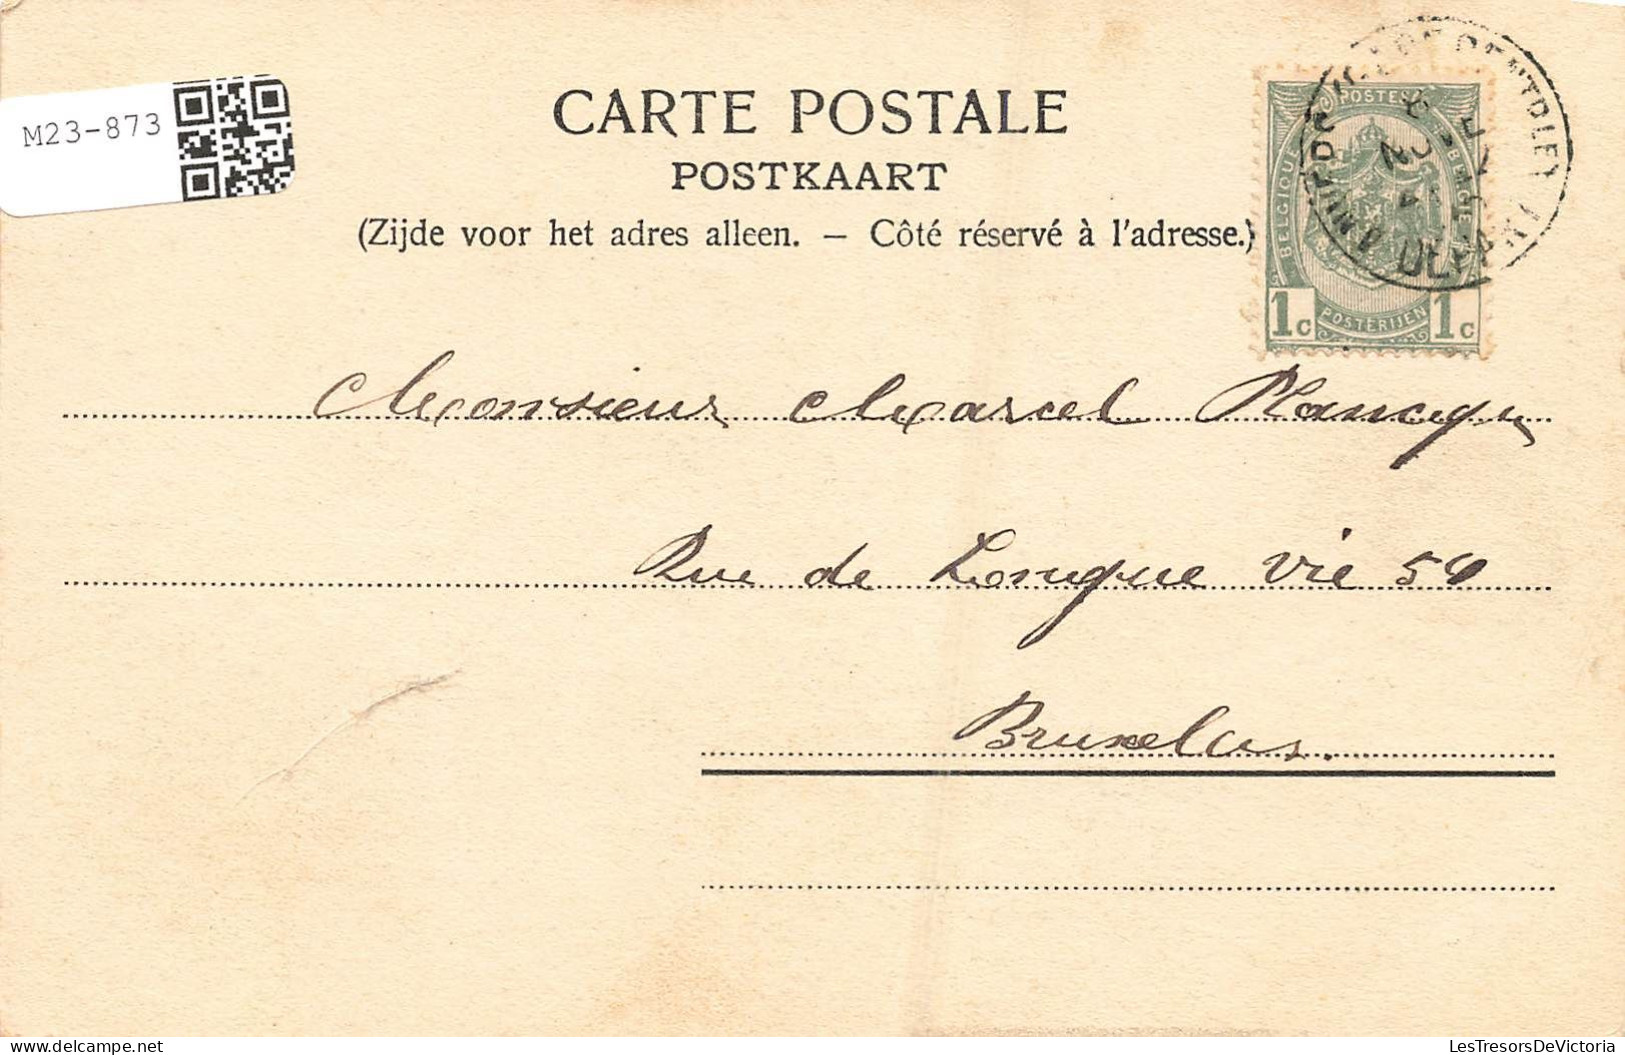 M23-873
CARTE POSTALE
POSTKAART
(Zijde voor het adres alleen. — Côté réservé à l'adresse.)
POSTES
BELGIQUE BELGIË
1c POSTERIJEN 1c
ANVERS DEPART
Monsieur Marcel Plancqu
Rue de Longue Vie 54
Bruxelles.
LesTresorsDeVictoria